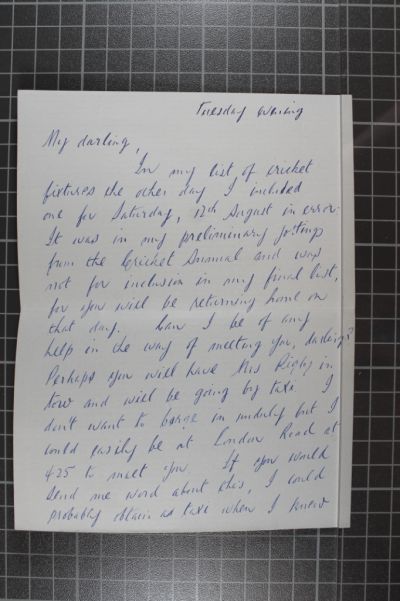 Tuesday evening
My darling,
In my list of cricket
fixtures the other day I included
one for Saturday, 12th August in error.
It was in my preliminary jottings
from the Cricket Annual and was
not for inclusion in my final list,
for you will be returning home on
that day. Can I be of any
help in the way of meeting you, darling?
Perhaps you will have Miss Rigby in
tow and will be going by taxi. I
don't want to barge in unduly but I
could easily be at London Road at
4.25 to meet you. If you would
send me word about this, I could
probably obtain a taxi when I knew